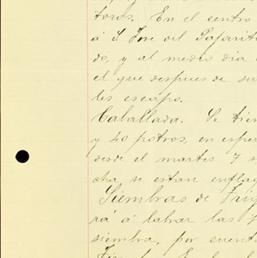 toros. En el centro
á S. José del Zafarit
do, y al medio dia
el que despues de su
les escapo.
Caballada. Se tien
y 40 potros, en espe
desde el martes 7 s
cha, se estan enflaq
Siembras de Trig
rá á labrar las 7
siembra, por cuent